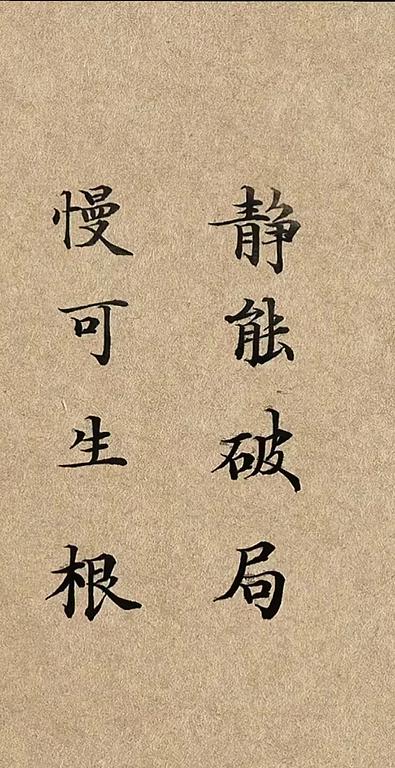 静能破局
慢可生根